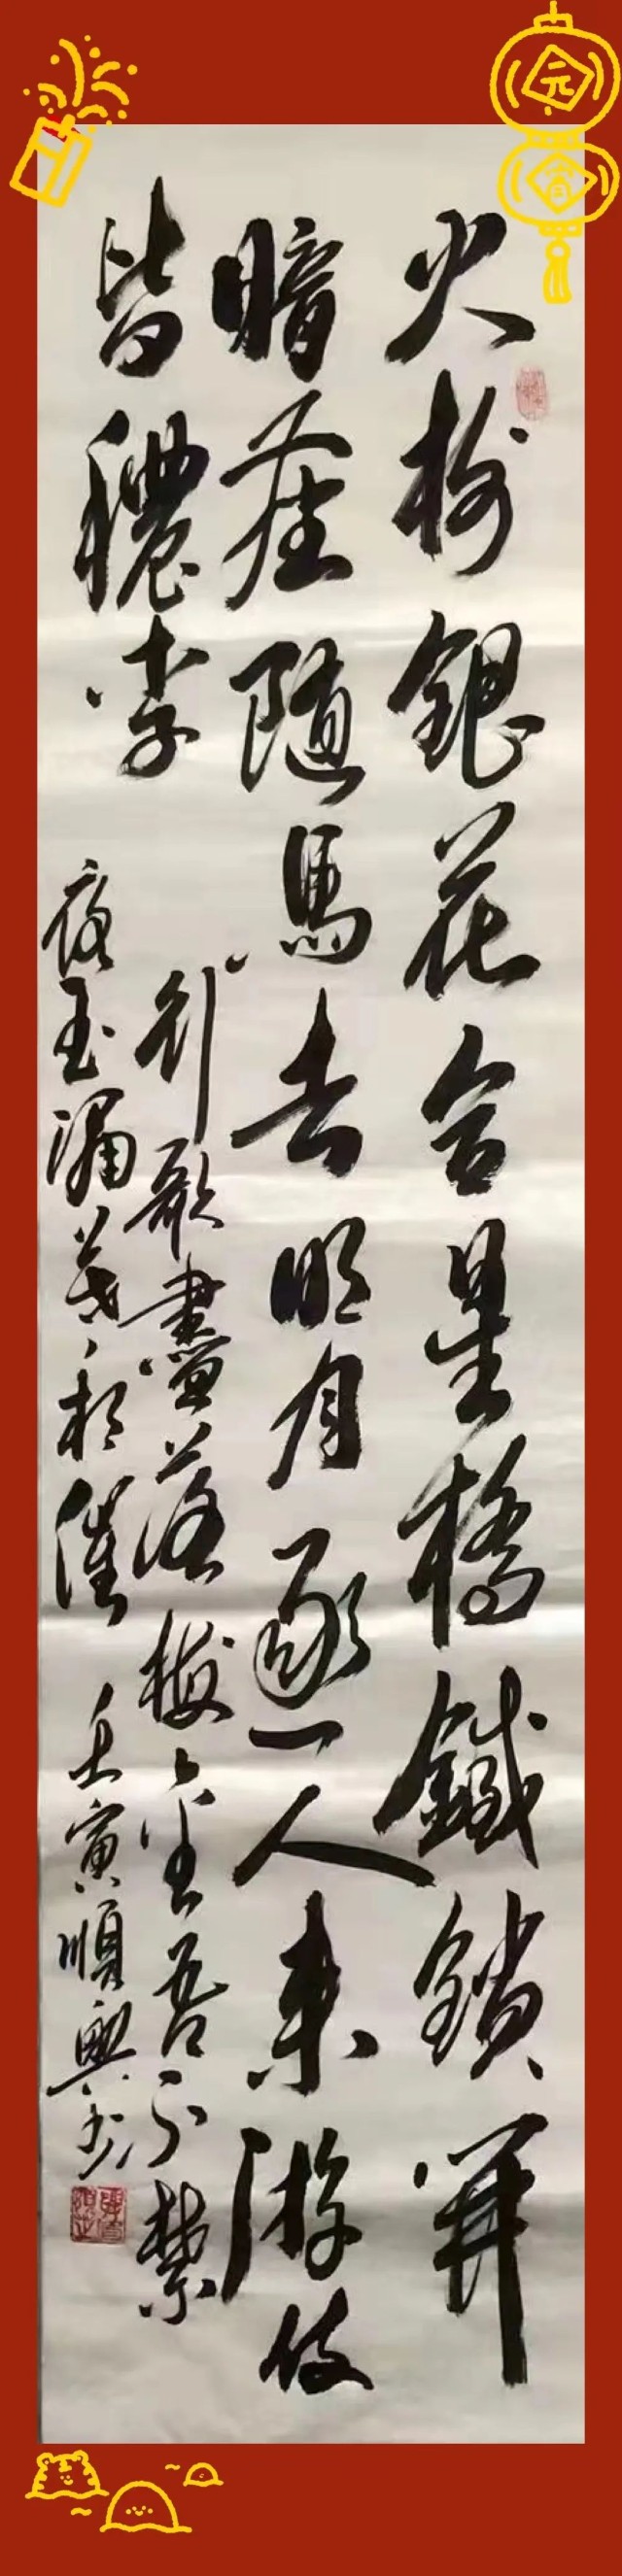 元
宵
火樹銀花合星橋鐵鎖開
暗塵随馬去明月逐人来游伎
皆穠李
行歌盡落梅金吾不禁
夜玉漏莫相催 壬寅順興書